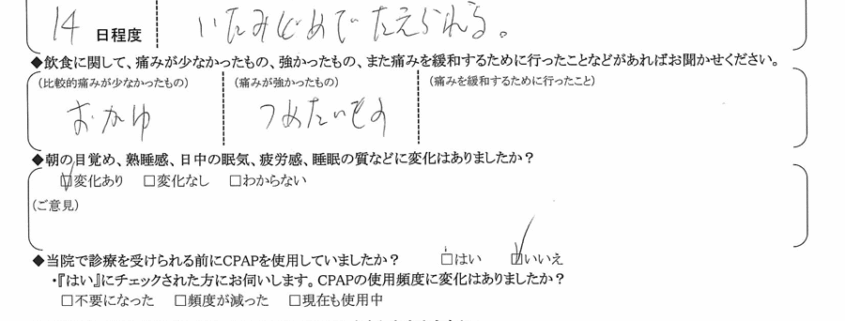 14 日程度 いたみどめでたえられる。
◆飲食に関して、痛みが少なかったもの、強かったもの、また痛みを緩和するために行ったことなどがあればお聞かせください。
(比較的痛みが少なかったもの) (痛みが強かったもの) (痛みを緩和するために行ったこと)
おかゆ つめたいもの
◆朝の目覚め、熟睡感、日中の眠気、疲労感、睡眠の質などに変化はありましたか?
☑変化あり □変化なし □わからない
(ご意見)
◆当院で診療を受けられる前にCPAPを使用していましたか? □はい ☑いいえ
・『はい』にチェックされた方にお伺いします。CPAPの使用頻度に変化はありましたか?
□不要になった □頻度が減った □現在も使用中